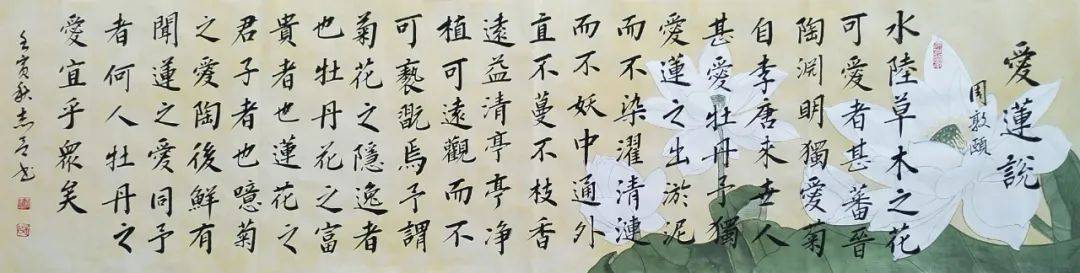 愛蓮說
周敦頤
水陸草木之花
可愛者甚蕃晉
陶渊明獨愛菊
自李唐來世人
甚愛牡丹予獨
愛蓮之出淤泥
而不染濯清漣
而不妖中通外
直不蔓不枝香
遠益清亭亭净
植可遠觀而不
可褻翫焉予謂
菊花之隱逸者
也牡丹花之富
貴者也蓮花之
君子者也噫菊
之愛陶後鮮有
聞蓮之愛同予
者何人牡丹之
愛宜乎衆矣
壬寅秋志